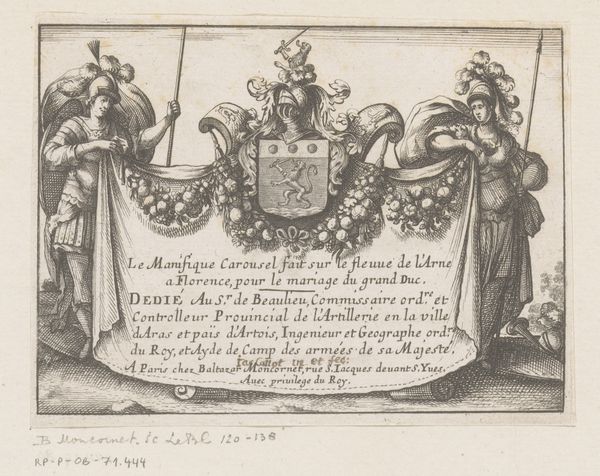 Le Manifique Carousel fait sur le fleuve de l'Arne
a Florence, pour le mariage du grand Duc.
DEDIE Au Sr. de Beaulieu, Commissaire ordre. et
Controlleur Provincial de l'Artillerie en la ville
d'Aras et païs d'Artois, Ingenieur et Geographe ordre.
du Roy, et Ayde de Camp des armées de sa Majesté.
Jac Callot in et fec:
A Paris chez Baltazar Moncornet, rüe S. Iacques devant S. Yves.
Avec privilege du Roy.
B Moncornet. sc Le Bl 120-138
RP-P-OB-71.444